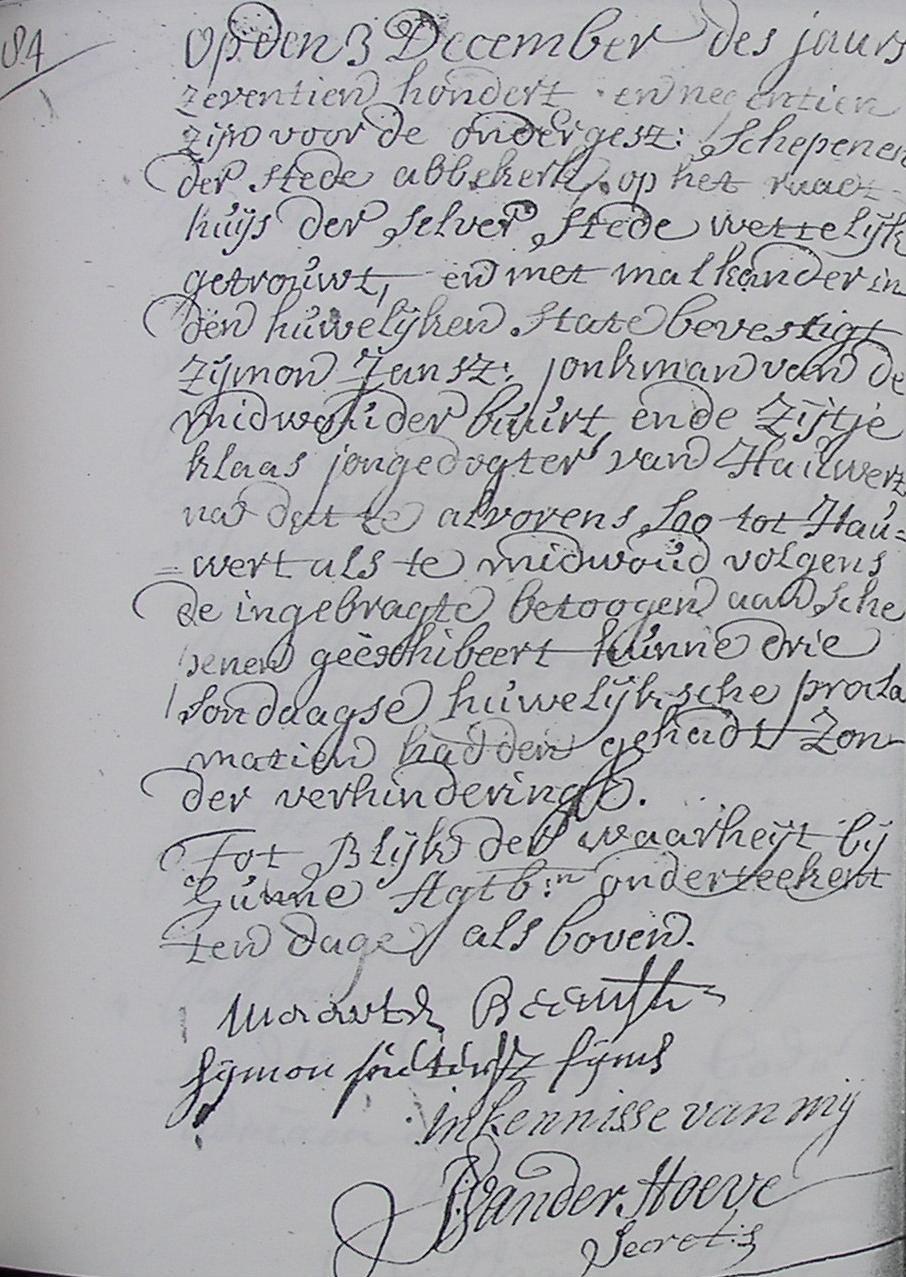 84
Op den 3 December des jaars
zeventien hondert en negentien
zijn voor de ondergesz: Schepenen
der stede abbekerk, op het raad-
huijs der selver stede wettelijk
getrouwt, en met malkander in
den huwelijken state bevestigt
Zijmon Jansz: jonkman van de
midwouder buurt ende Zijtje
klaas jongedogter van Hauwert
na dat te alvorens soo tot Hau=
=wert als te midwoud volgens
de ingebragte betoogen aan Sche
penen geëxhibeert hunne drie
sondaagse huwelijksche procla
matien hadden gehadt Zon
der verhinderingh.
Tot Blijk der waarheijt bij
hunne Agtb:n onderteekent
ten dage als boven.
Maart
Sijmon Sijms
in kennisse van mij
Vander Hoeve
Secret:s